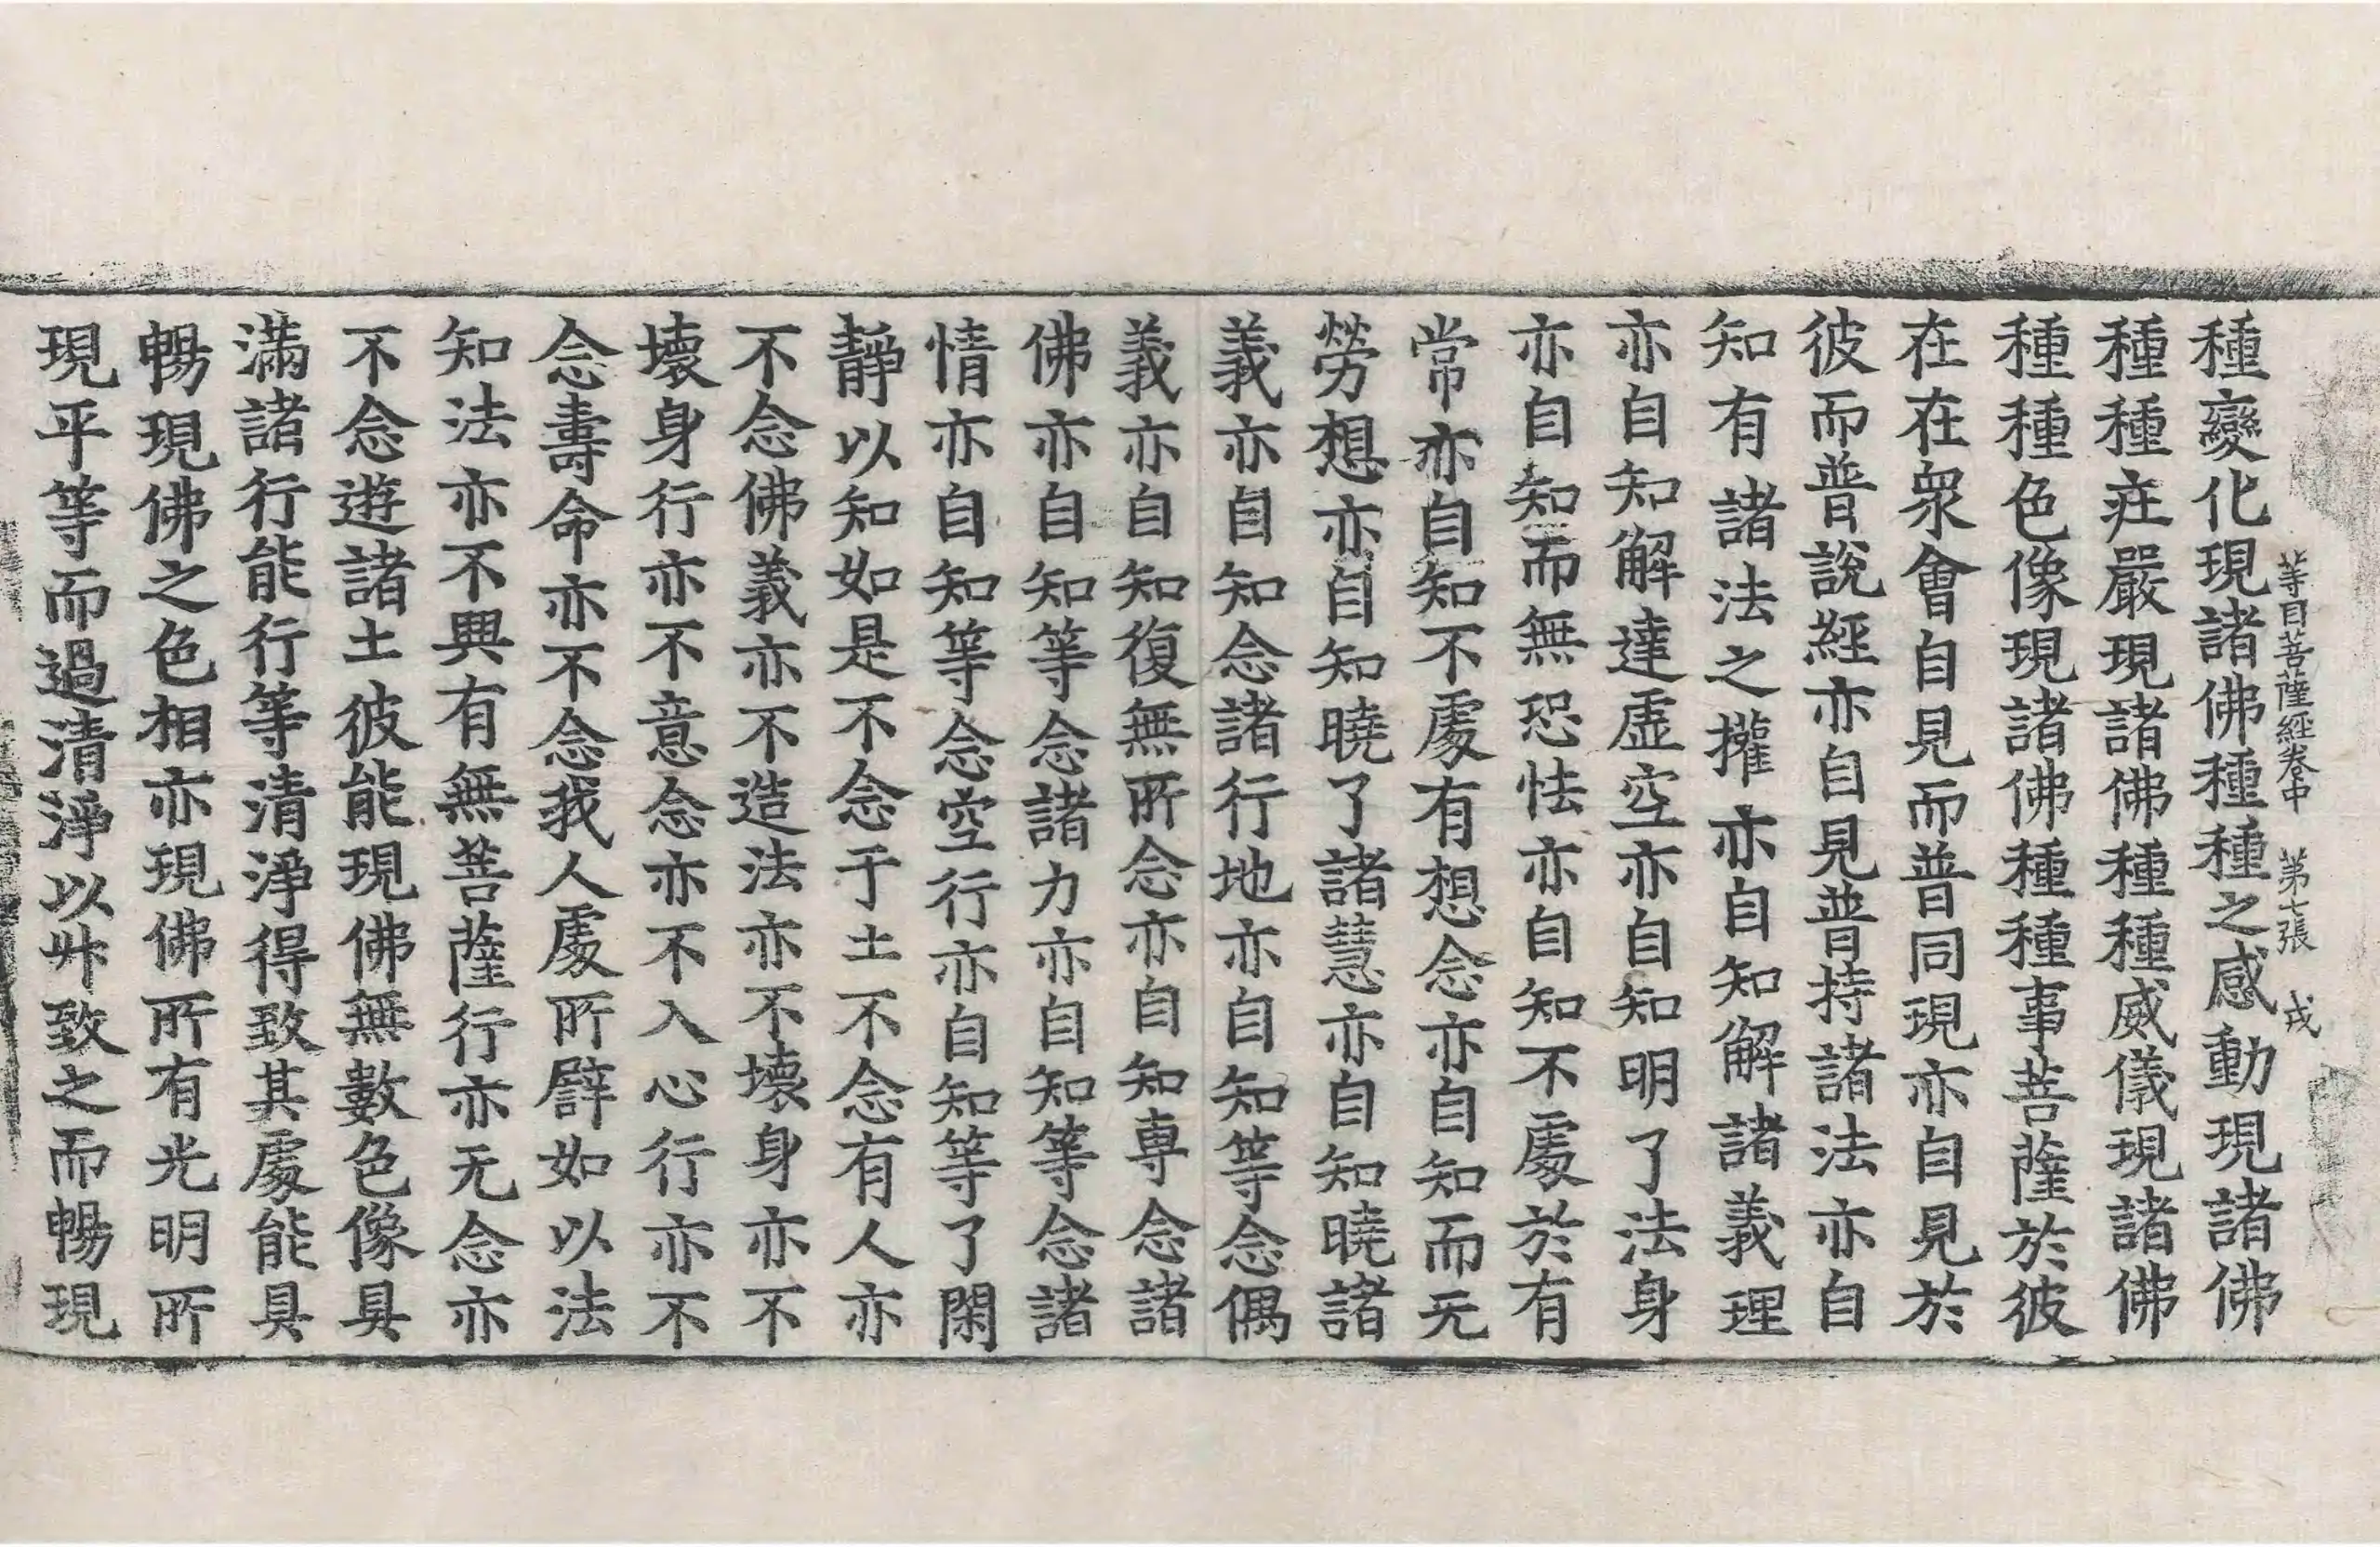 等目菩薩經卷中　第七張　戎
種變化現諸佛種種之感動現諸佛
種種疘嚴現諸佛種種威儀現諸佛
種種色像現諸佛種種事菩薩於彼
在在衆會自見而普同現亦自見於
彼而普說經亦自見普持諸法亦自
知有諸法之㩲亦自知解諸義理
亦自知解達虛空亦自知明了法身
亦自知而無恐怯亦自知不處於有
常亦自知不處有想念亦自知而无
勞想亦自知曉了諸慧亦自知曉諸
義亦自知念諸行地亦自知等念偶
義亦自知復無所念亦自知專念諸
佛亦自知等念諸力亦自知等念諸
情亦自知等念空行亦自知等了閑
靜以知如是不念于土不念有人亦
不念佛義亦不造法亦不壞身亦不
壞身行亦不意念亦不入心行亦不
念壽命亦不念我人處所譬如以法
知法亦不興有無菩薩行亦无念亦
不念遊諸土彼能現佛無數色像具
滿諸行能行等清淨得致其處能具
暢現佛之色相亦現佛所有光明所
現平等而過清淨以㸦致之而暢現